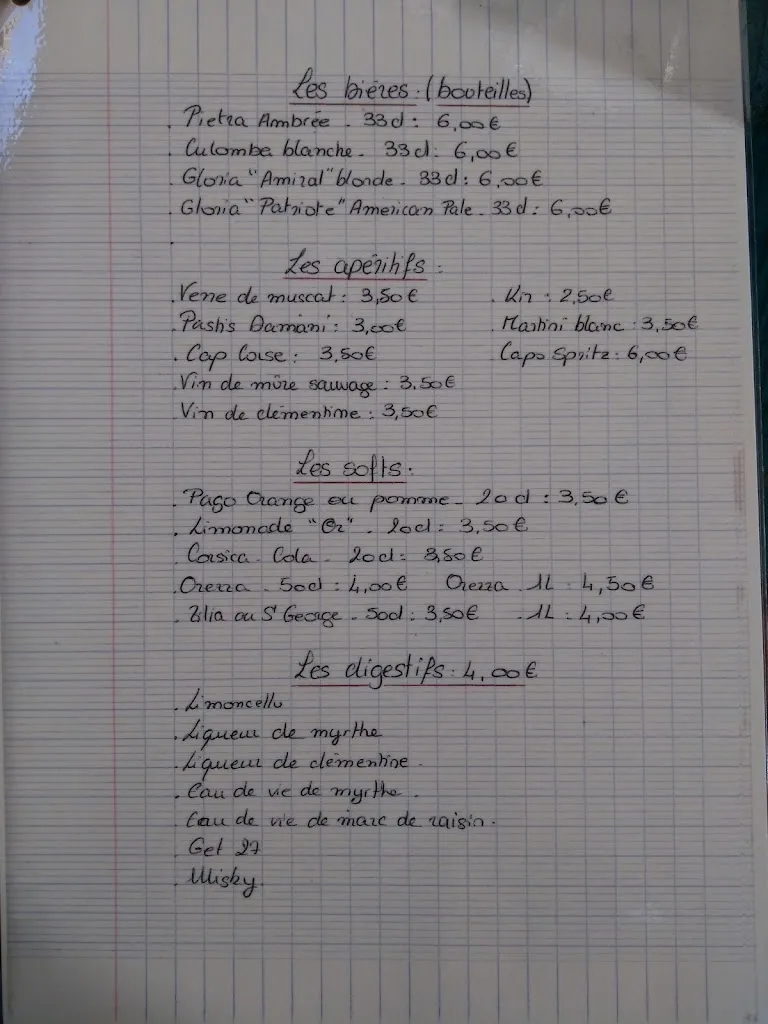 Les bières : (bouteilles)
. Pietra Ambrée - 33cl : 6,00€
. Culomba blanche - 33cl : 6,00€
. Gloria "Amiral" blonde - 33cl : 6,00€
. Gloria "Patriote" American Pale - 33cl : 6,00€
.
Les apéritifs :
. Verre de muscat : 3,50€ . Kir : 2,50€
. Pastis Damiani : 3,00€ . Martini blanc : 3,50€
. Cap Corse : 3,50€ Capo Spritz : 6,00€
. Vin de mûre sauvage : 3,50€
. Vin de clémentine : 3,50€
Les softs :
. Pago Orange ou pomme - 20cl : 3,50€
. Limonade "Or" - 20cl : 3,50€
. Corsica Cola - 20cl : 3,50€
. Orezza - 50cl : 4,00€ Orezza . 1L : 4,50€
. Zilia ou St George - 50cl : 3,50€ - 1L : 4,00€
Les digestifs : 4,00€
. Limoncello
. Liqueur de myrthe
. Liqueur de clémentine .
. Eau de vie de myrthe .
. Eau de vie de marc de raisin .
. Get 27
. Wisky